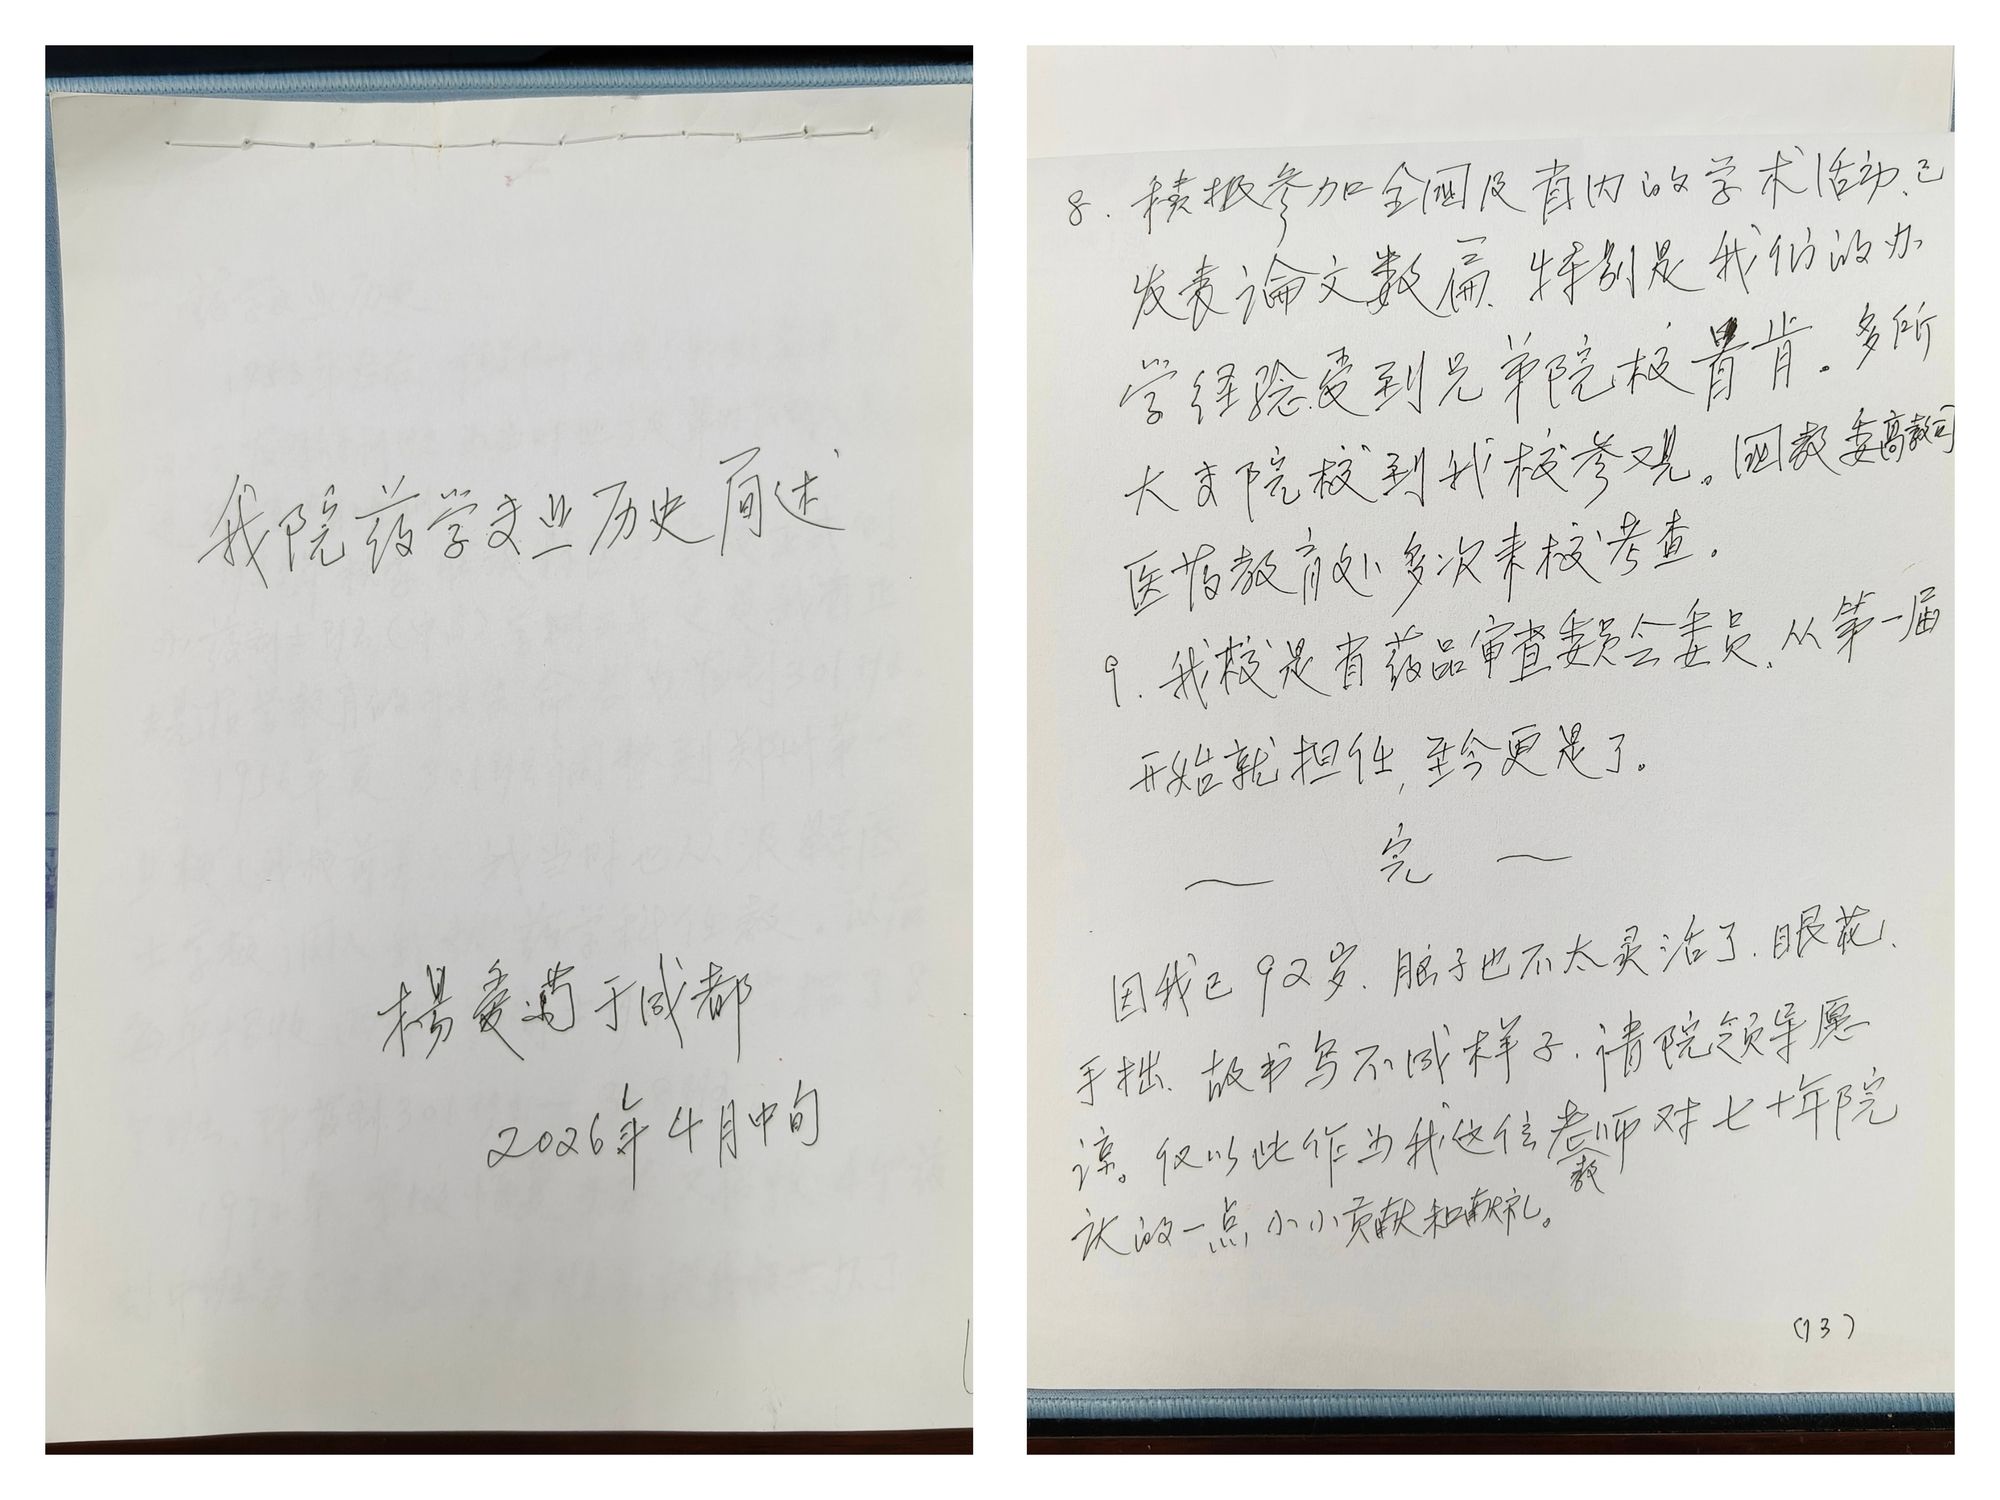 我院药学专业历史简述
楊爱萬于成都
2026年4月中旬
8. 积极参加全国及省内的学术活动、已
发表论文数篇、特别是我们的办
学经验受到兄弟院校首肯。多所
大专院校到我校参观。国教委高教司
医药教育处多次来校考查。
9. 我校是省药品审查委员会委员、从第一届
开始就担任,至今更是了。
～ 完 ～
因我已92岁、脑子也不太灵活了、眼花、
手拙、故书写不成样子、请院领导愿
谅。仅以此作为我这位老教师对七十年院
庆的一点小小贡献和献礼。
(13)